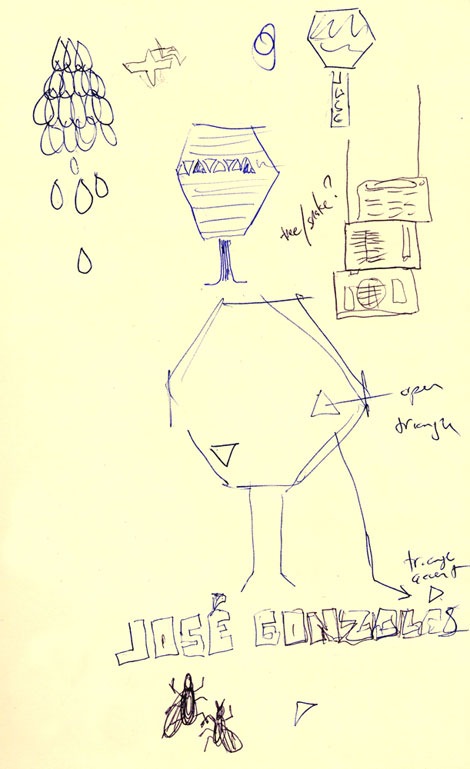 JOSÉ
tree/snake?
open
triangle
triangle
accent
JOSÉ GONZALES